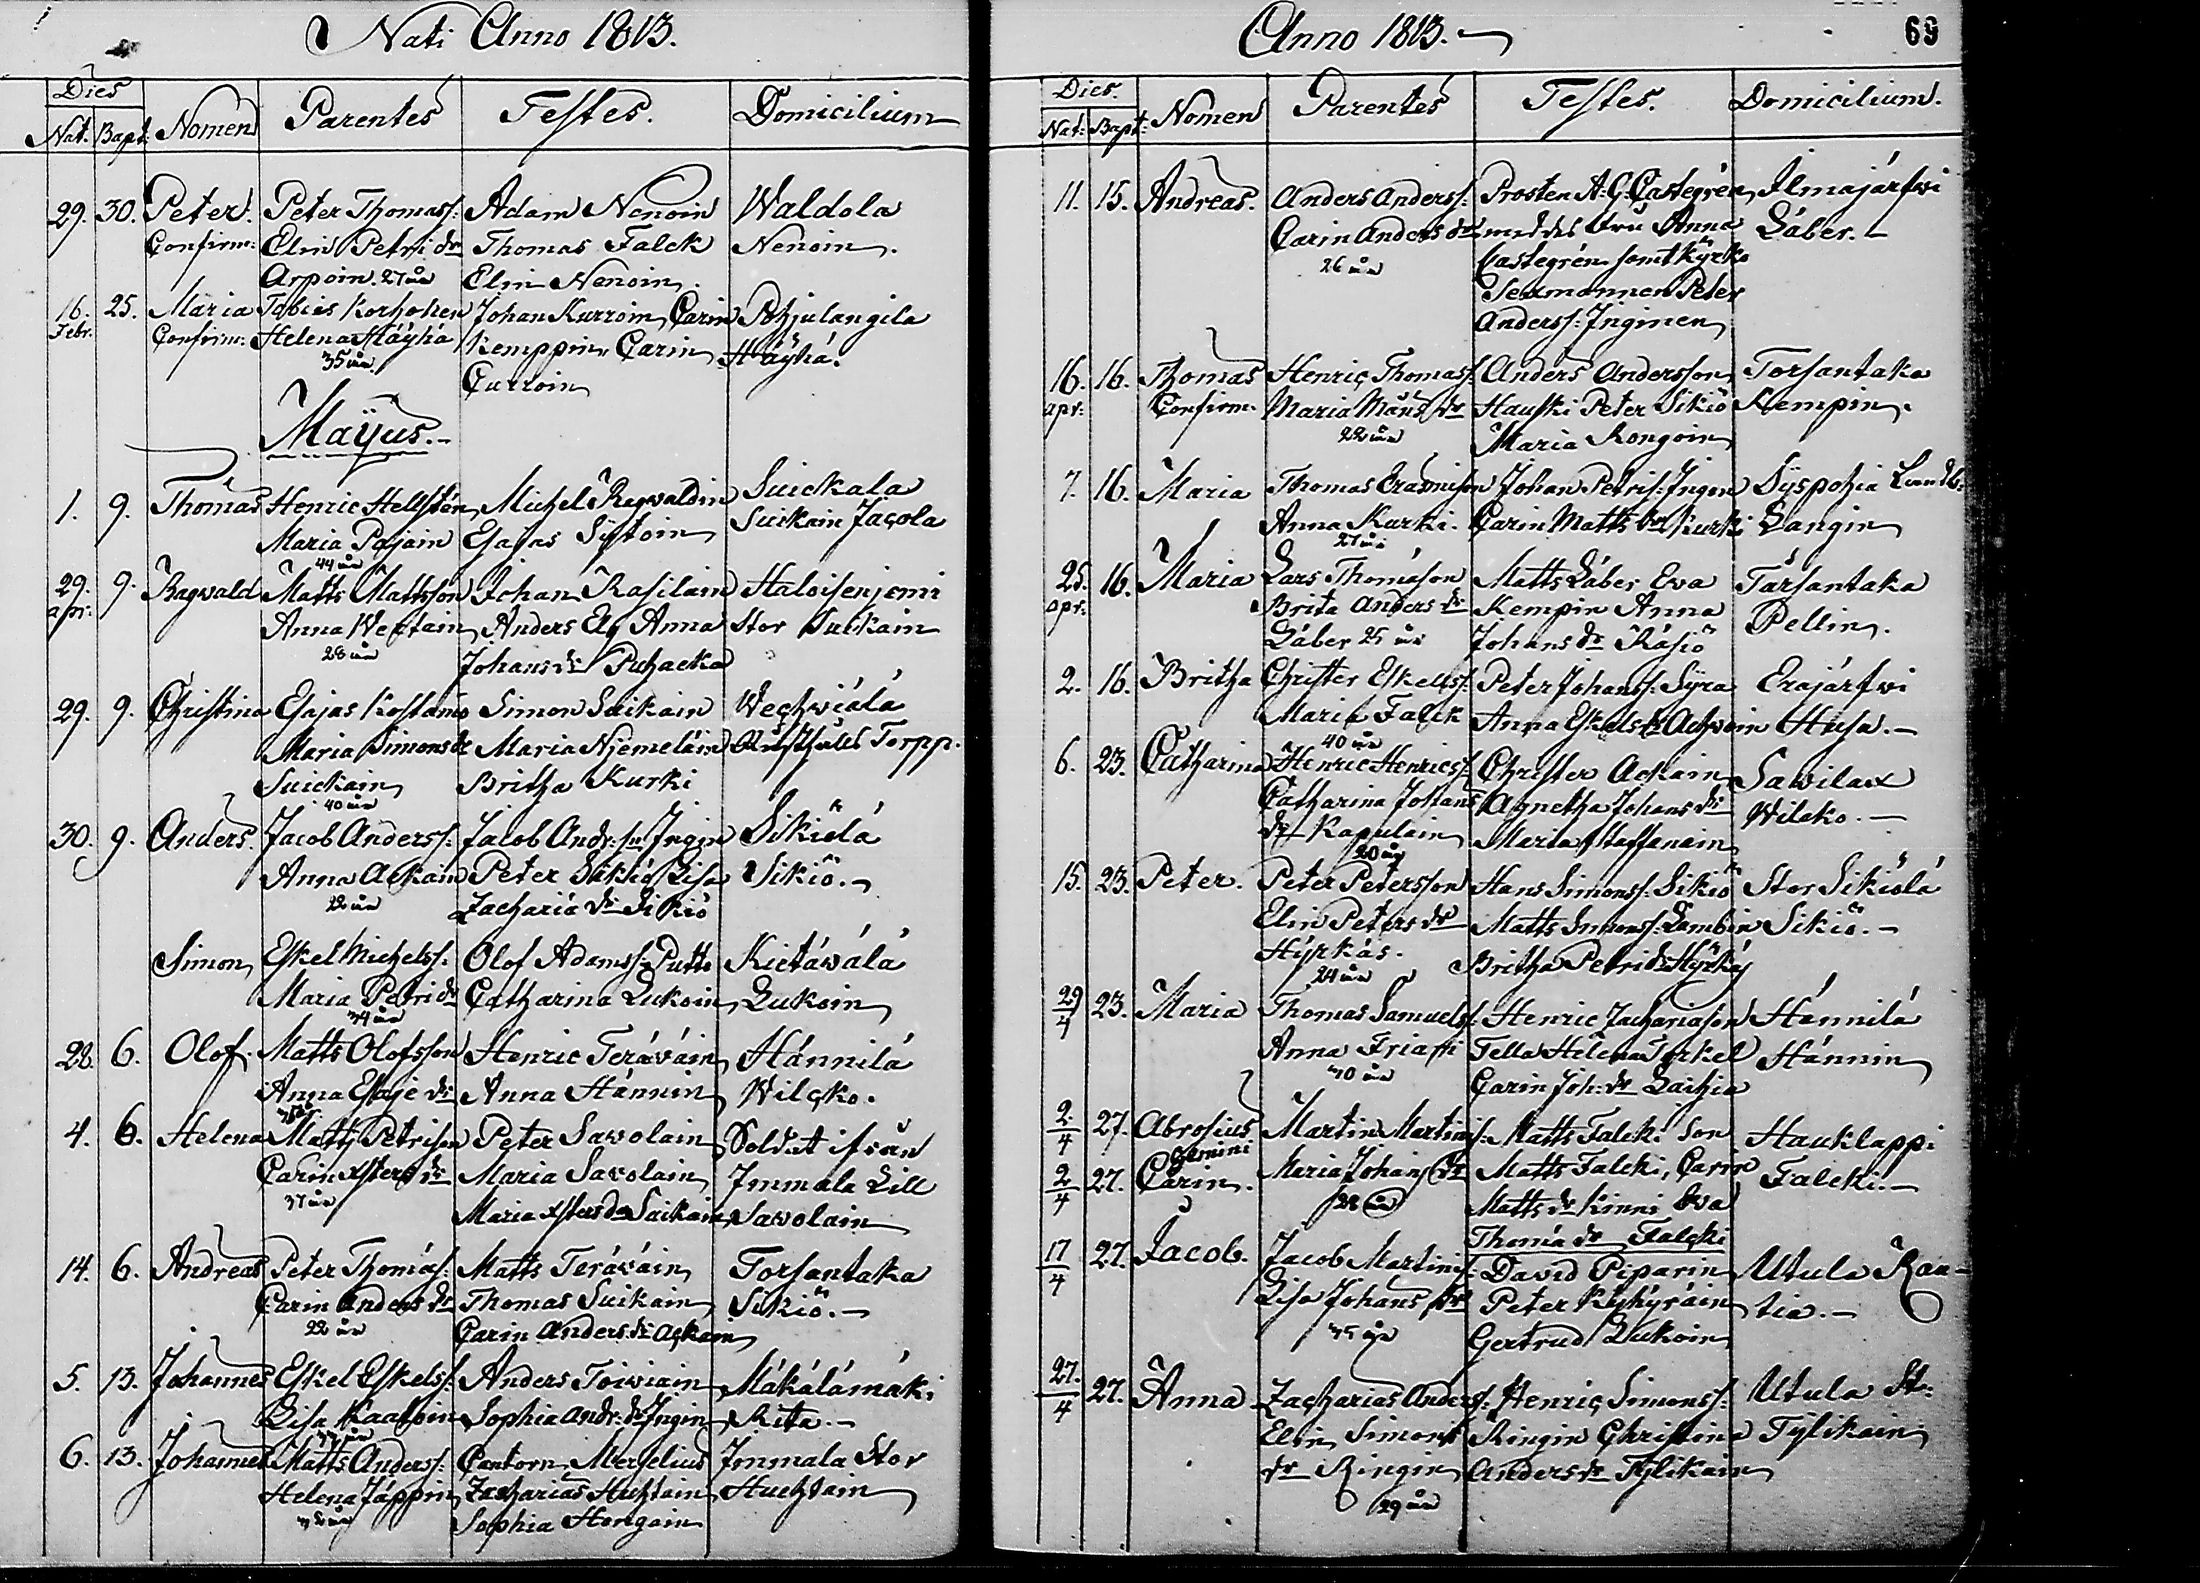 Nati Anno 1813.
Dies
Nat. Bapt. Nomen Parentes Testes. Domicilium
29. 30. Peter. Peter Thomass: Adam Nenoin Waldola
Confirm: Elin Petri dr Thomas Falck Nenoin.
Arpoin. 27 år Elin Nenoin.
16. 25. Maria Tobias Korhonen Johan Kurroin, Carin Pohjulangila
Febr. Confirm: Helena Häyhä Kemppin, Carin Häyhä.
35 år Curroin
Mayus.
1. 9. Thomas Henric Hellstén Michel Regwaldin Suickala
Maria Pajain Esajas Sytoin Suikain Jacola
44 år
29. 9. Ragwald Matts Mattsson Johan Rasilain Haloisenjemi
apr: Anna Wertain Anders Anna Stor Suikain
28 år Johans dr Puhacka
29. 9. Christina Esajas Kostamo Simon Suikain Wechwiälä
Maria Simons dr Maria Njemeläin Torpp.
Suickain Britha Kurki
40 år
30. 9. Anders. Jacob Anderss: Jacob Andr: sn Ingin Sikiölä
Anna Ackain Peter Sikiö Lisa Sikiö.
22 år Zacharia dr Sikiö
Simon Eskel Michelss: Olof Adamss: Putto Kietäwälä
Maria Petri dr Catharina Lukoin Lukoin
34 år
28. 6. Olof. Matts Olofsson Henric Teräwäin Hännilä
Anna Eskje dr Anna Hännin Wilcko.
4. 6. Helena Matts Petrison Peter Sawolain Soldat ifrån
Carin Xsters dr Maria Sawolain Immala Lill
37 år Maria Xsters dr Suikain Sawolain
14. 6. Andreas Peter Thomas: Matts Teräwäin Torsantaka
Carin Anders dr Thomas Suikain Sikiö.
22 år Carin Anders dr Ackain
5. 13. Johannes Eskel Eskelss: Anders Toiwiain Mäkälämäki
Lisa Kaaloin Sophia Andr: dr Ingin Rita.
6. 13. Johannes Matts Anderss: Cantorn Merselius Immala Stor
Helena Jäppin Zacharias Huchtain Huchtain
Sophia Hongain
Anno 1813. 69
Dies.
Nat: Bapt: Nomen Parentes Testes. Domicilium.
11. 15. Andreas. Anders Anderss: Prosten A: G: Castegrén Ilmajärfwi
Carin Anders dr med des Fru Anna Läber.
26 år Castegrén samt Kyrko
Sexmannen Peter
Anderss: Inginen
16. 16. Thomas Henric Thomass: Anders Andersson Torsantaka
apr: Confirm. Maria Måns dr Hauski Peter Sikiö Kempin.
22 år Maria Rongoin
7. 16. Maria Thomas Erasmison Johan Petris: Ingin Syspohia Landb:
Anna Kurki. Carin Matts dr Kurki Langin
27 år
25. 16. Maria Lars Thomason Matts Läber Ewa Tarsantaka
apr. Brita Anders dr Kempin Anna Pellin.
Läber 25 år Johans dr Räsiö
2. 16. Britha Christer Eskelss: Peter Johanss: Syra Erajärfwi
Maria Falck Anna Eskels dr Achwoin Husa.
40 år
6. 23. Catharina Henric Henricss: Christer Ackain Sawilax
Catharina Johans Agnetha Johans dr Wilcko.
dr Kapulain Maria Staffanain
20 år
15. 23. Peter. Peter Petersson Hans Simonss: Sikiö Stor Sikiölä
Elin Peters dr Matts Simonss: Lambin Sikiö.
Hyrkäs. Britha Petri dr Hyrkäs
24 år
29/4 23. Maria Thomas Samuels: Henric Zachariason Hännilä
Anna Friari Tella Helena Torkel Hännin
30 år Carin Joh: dr Laihia
2/4 27. Abrosius Martin Martins: Matts Falcki son Hauklappi
Gemini
2/4 27. Carin. Maria Johans dr Matts Falcki, Carin Falcki.
28 år Matts dr Kinni Ewa
Thomä dr Falcki
17/4 27. Jacob. Jacob Martins: David Piparin Utula Rau-
Lisa Johans dr Peter Kyhyräin tia.
35 år Gertrud Lukoin
27./4 27. Anna Zacharias Anders: Henric Simonss: Utula St:
Elin Simons Ringin Christina Tylikain
dr Ringin Anders dr Tylikain
29 år